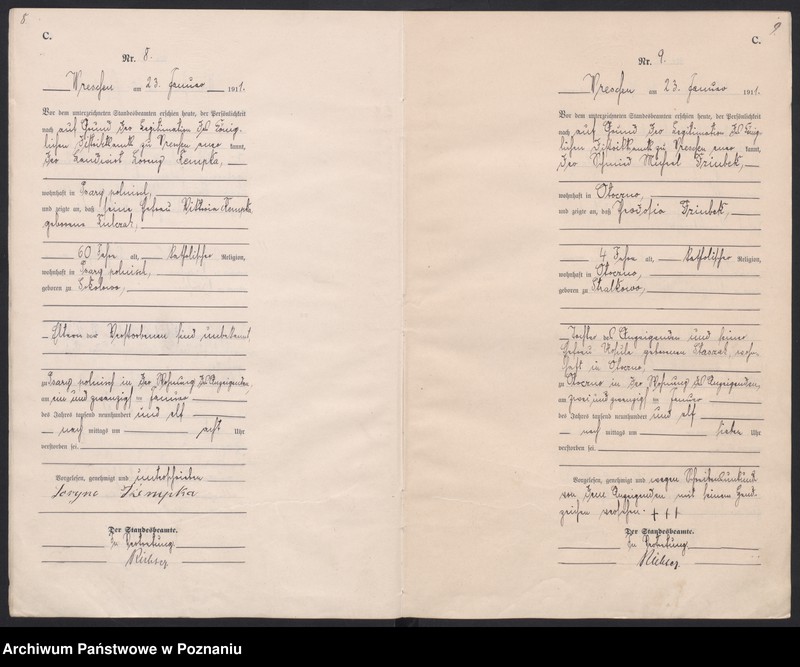 8.
C.
Nr. 8.
Wreschen am 23. Januar 1911.
Vor dem unterzeichneten Standesbeamten erschien heute, der Persönlichkeit
nach auf Grund der Legitimation des König-
lichen Distriktsamt zu Wreschen kannt,
der Landwirt
wohnhaft in polnisch,
und zeigte an, daß seine Ehefrau Viktoria
geborene
60 Jahre alt, katholischer Religion,
wohnhaft in polnisch,
geboren zu Sokolowo,
Eltern der Verstorbenen sind unbekannt
zu polnisch in der Wohnung des Anzeigenden,
am ein und zwanzigsten Januar
des Jahres tausend neunhundert und elf
nach mittags um acht Uhr
verstorben sei.
Vorgelesen, genehmigt und unterschrieben
Der Standesbeamte.
In Vertretung
9
C.
Nr. 9.
Wreschen am 23. Januar 1911.
Vor dem unterzeichneten Standesbeamten erschien heute, der Persönlichkeit
nach auf Grund der Legitimation des König-
lichen Distriktsamt zu Wreschen kannt,
der Schmied
wohnhaft in Otoczno,
und zeigte an, daß
4 Jahre alt, katholischer Religion,
wohnhaft in Otoczno,
geboren zu Stralkowo,
Tochter des Anzeigenden und seiner
Ehefrau geborenen wohn-
haft in Otoczno,
zu Otoczno in der Wohnung des Anzeigenden,
am zwei und zwanzigsten Januar
des Jahres tausend neunhundert und elf
nach mittags um sieben Uhr
verstorben sei.
Vorgelesen, genehmigt und wegen Schreibensunkunde
von dem Anzeigenden mit seinem Hand-
zeichen versehen. +++
Der Standesbeamte.
In Vertretung
Archiwum Państwowe w Poznaniu